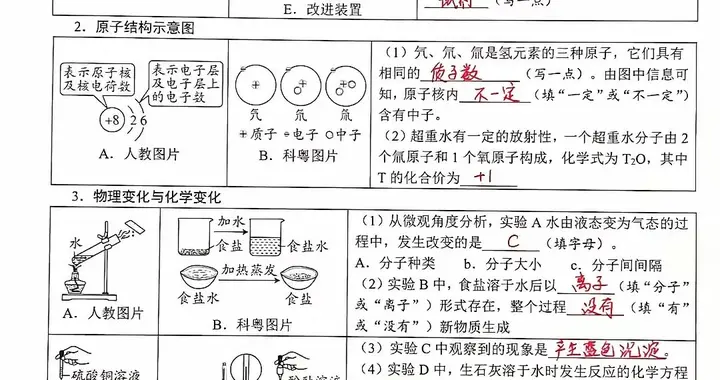 E. 改进装置
试剂（写一点）
2. 原子结构示意图
表示原子核及核电荷数
表示电子层及电子层上的电子数
+8 2 6
A. 人教图片
氕 氘 氚
+质子 •电子 ○中子
B. 科粤图片
（1）氕、氘、氚是氢元素的三种原子，它们具有
相同的 质子数 （写一点）。由图中信息可
知，原子核内 不一定 （填“一定”或“不一定”）
含有中子。
（2）超重水有一定的放射性，一个超重水分子由 2
个氚原子和 1 个氧原子构成，化学式为 T₂O，其中
T 的化合价为 +1
3. 物理变化与化学变化
水
A. 人教图片
加水
食盐 食盐水
加热蒸发
食盐水 食盐
B. 科粤图片
（1）从微观角度分析，实验 A 水由液态变为气态的过
程中，发生改变的是 C （填字母）。
A. 分子种类 b. 分子大小 c. 分子间间隔
（2）实验 B 中，食盐溶于水后以 离子 （填“分子”
或“离子”）形式存在，整个过程 没有 （填“有”
或“没有”）新物质生成
（3）实验 C 中观察到的现象是 产生蓝色沉淀。
（4）实验 D 中，生石灰溶于水时发生反应的化学方程
硫酸铜溶液